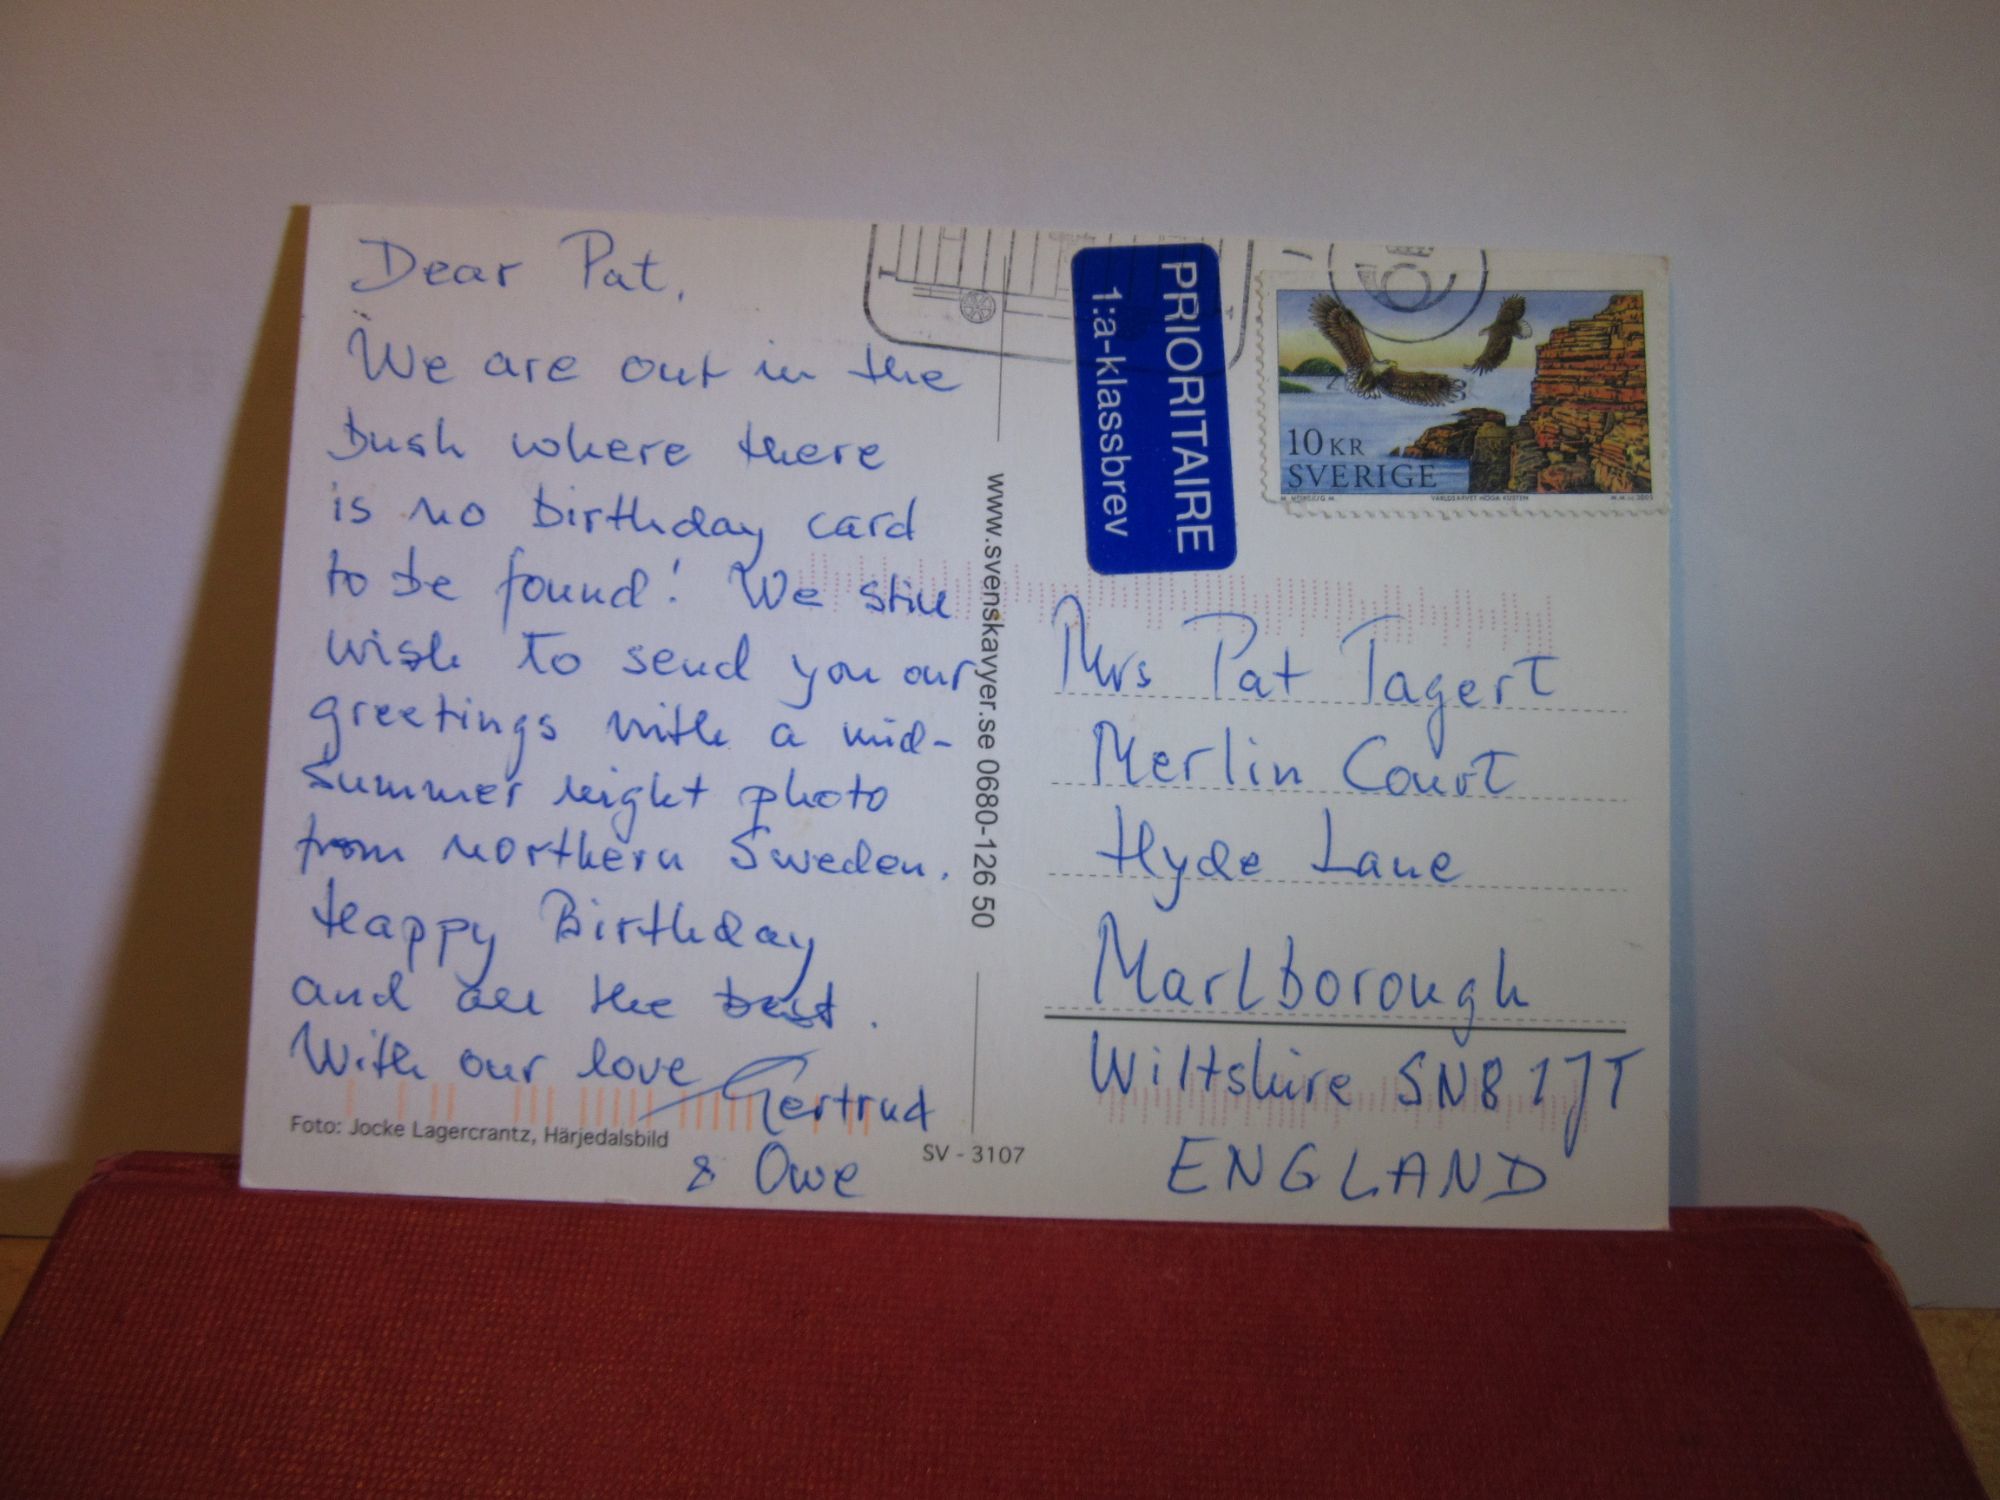 Dear Pat,
We are out in the
bush where there
is no birthday card
to be found! We still
wish to send you our
greetings with a mid-
summer night photo
from northern Sweden.
Happy Birthday
and all the best.
With our love Gertrud
& Owe
Foto: Jocke Lagercrantz, Härjedalsbild
SV - 3107
www.svenskavyer.se 0680-126 50
PRIORITAIRE
1:a-klassbrev
10 KR
SVERIGE
VÄRLDSARVET HÖGA KUSTEN
Mrs Pat Tagert
Merlin Court
Hyde Lane
Marlborough
Wiltshire SN8 1JT
ENGLAND